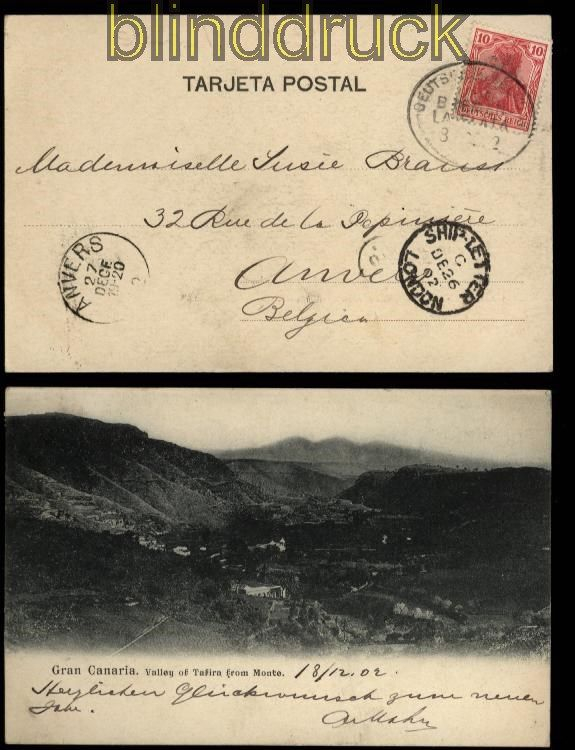 blinddruck
TARJETA POSTAL
10 10
DEUTSCHES REICH
DEUTSCHE
Mademoiselle Susie
32 Rue de la Pépinière
Anvers
Belgien
ANVERS
27
DECE
SHIP-LETTER
C
DE 26
02
LONDON
Gran Canaria. Valley of Tafira from Monte. 18/12.02.
Herzlichen Glückwunsch zum neuen
Jahr.